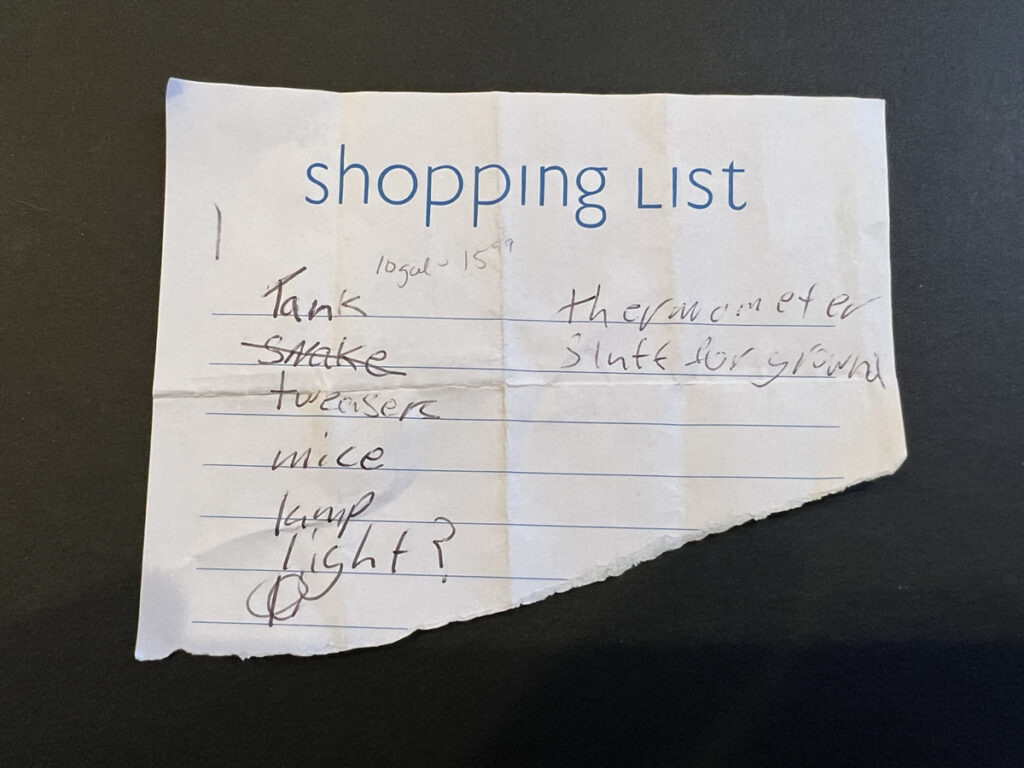 shopping List
10gal - 15⁹⁹
Tank
snake
tweasers
mice
lamp
Light?
thermometer
stuff for ground